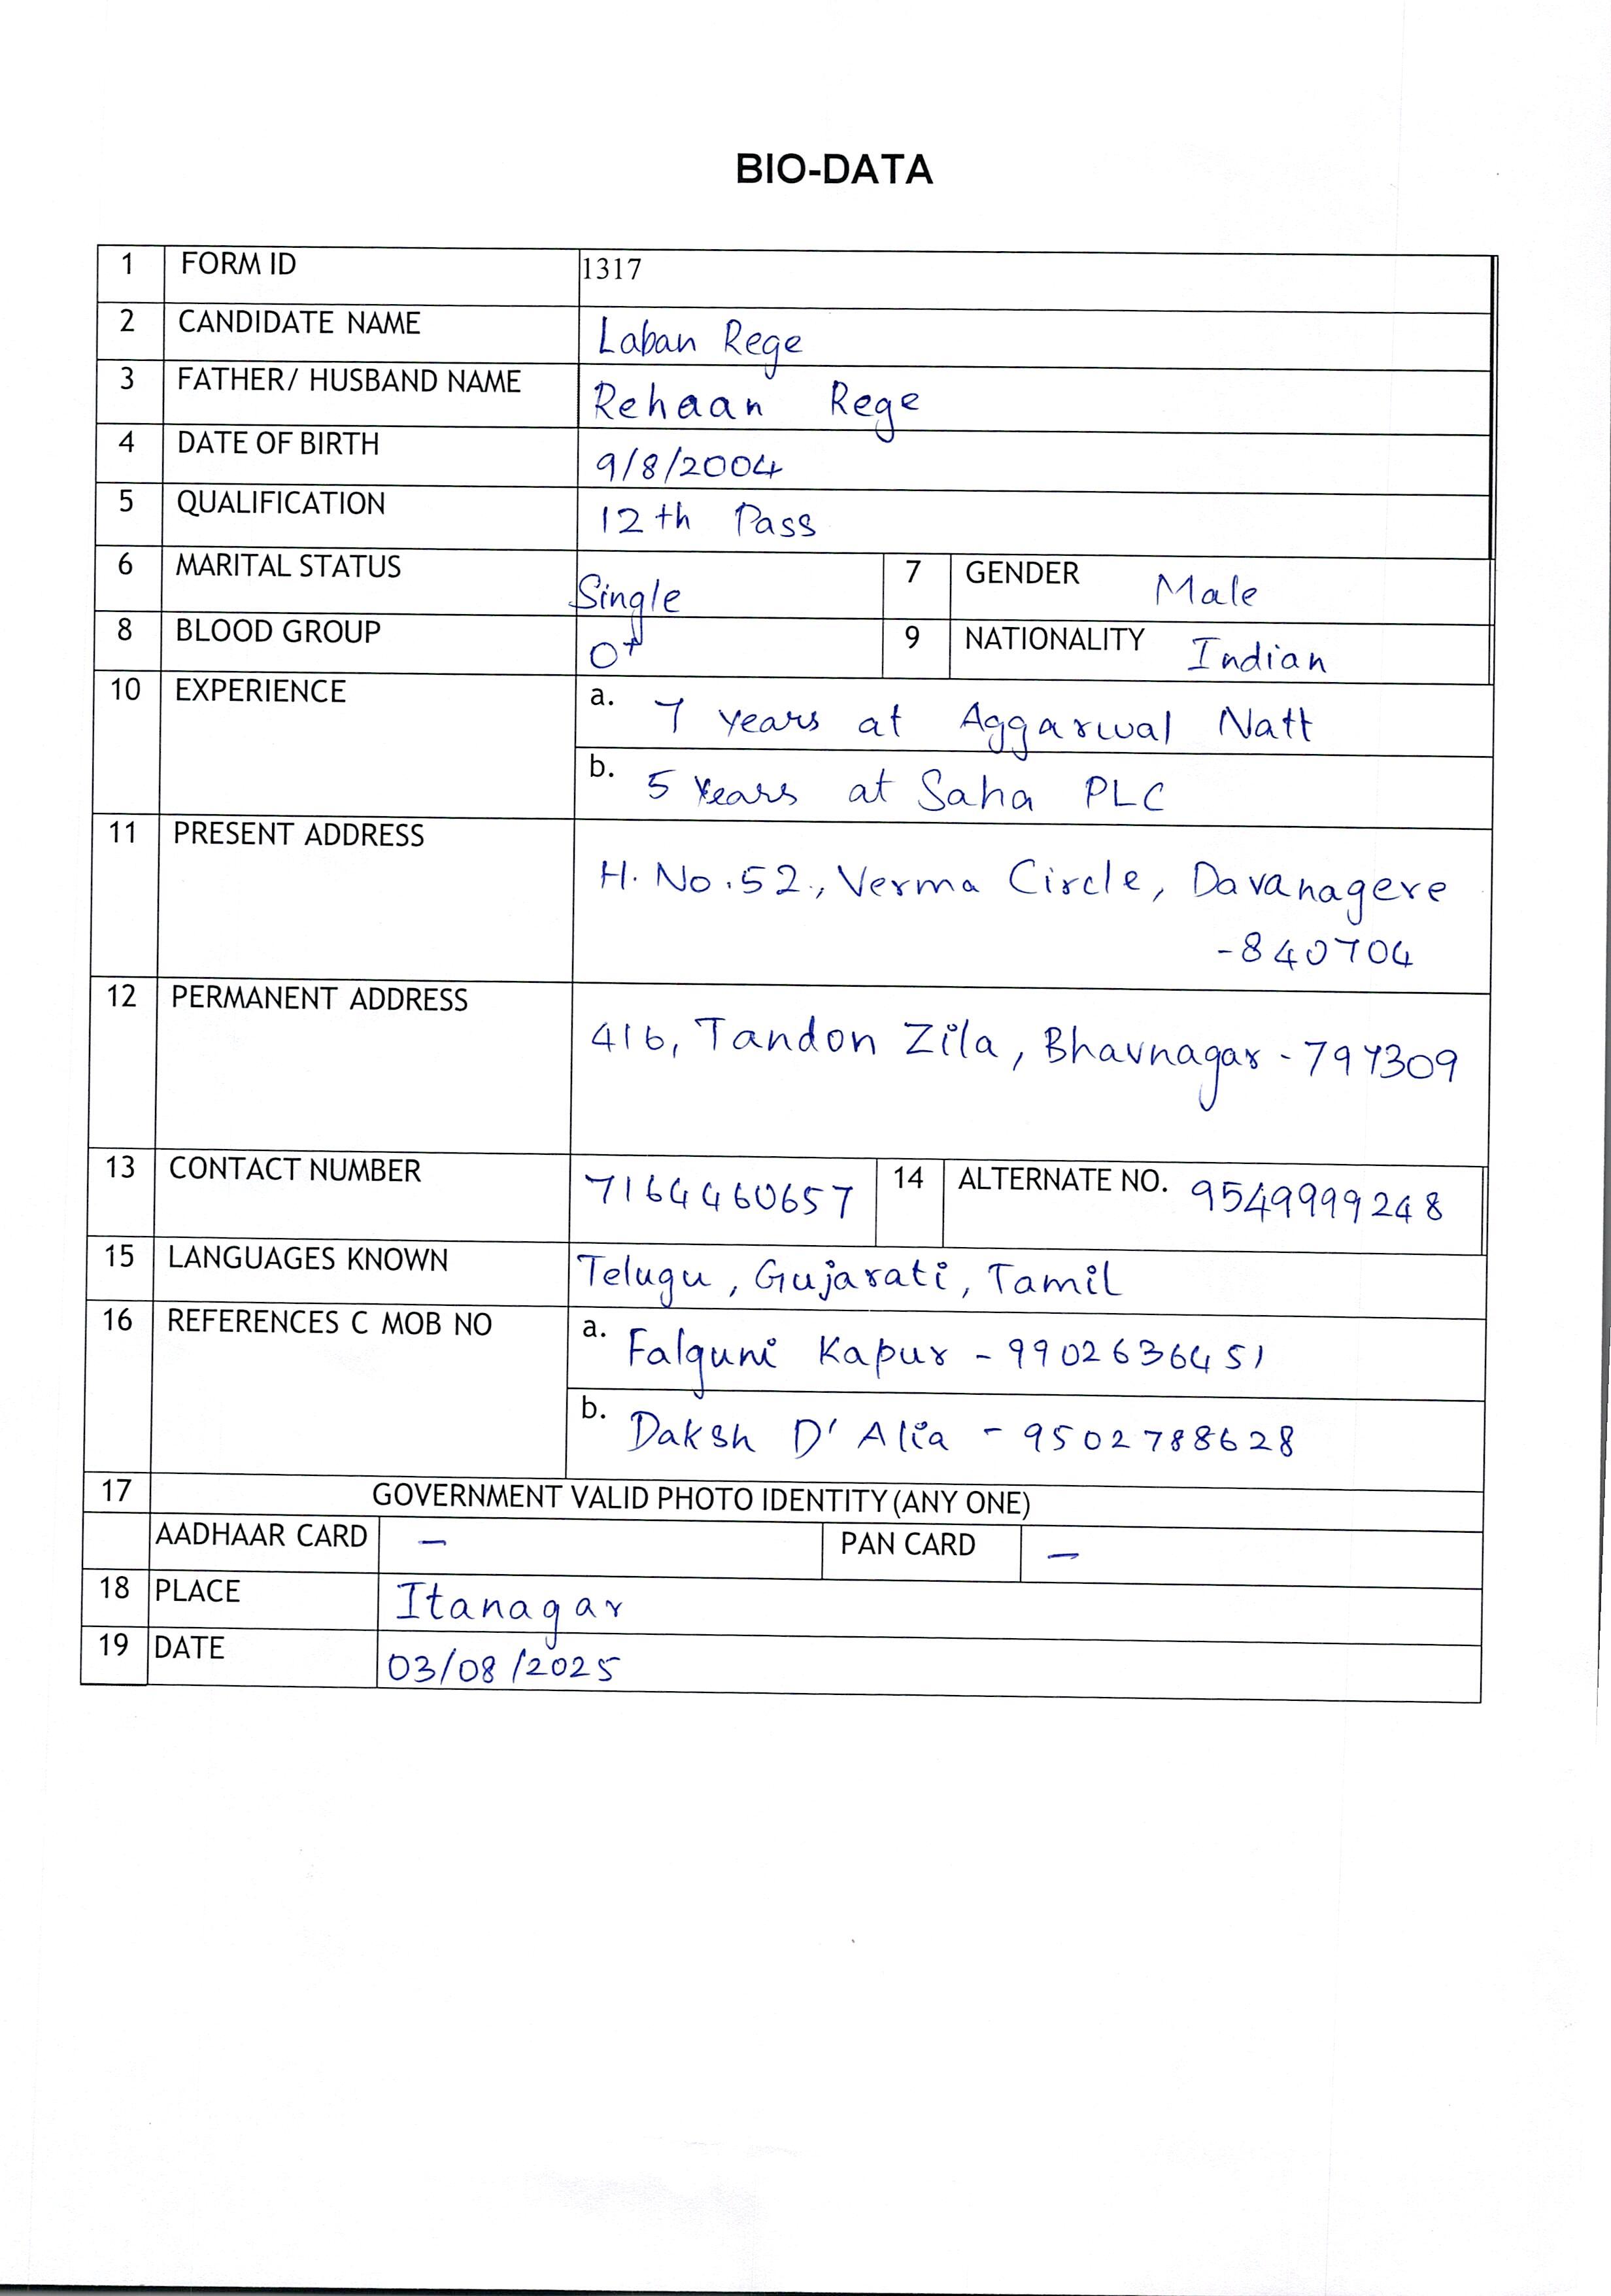 BIO-DATA
1 FORM ID 1317
2 CANDIDATE NAME Laban Rege
3 FATHER/ HUSBAND NAME Rehaan Rege
4 DATE OF BIRTH 9/8/2004
5 QUALIFICATION 12th Pass
6 MARITAL STATUS Single 7 GENDER Male
8 BLOOD GROUP O+ 9 NATIONALITY Indian
10 EXPERIENCE a. 7 years at Aggarwal Natt
b. 5 Years at Saha PLC
11 PRESENT ADDRESS H. No. 52., Verma Circle, Davanagere
-840704
12 PERMANENT ADDRESS 416, Tandon Zila, Bhavnagar - 797309
13 CONTACT NUMBER 7164460657 14 ALTERNATE NO. 9549999248
15 LANGUAGES KNOWN Telugu, Gujarati, Tamil
16 REFERENCES C MOB NO a. Falguni Kapur - 9902636451
b. Daksh D' Alia - 9502788628
17 GOVERNMENT VALID PHOTO IDENTITY (ANY ONE)
AADHAAR CARD - PAN CARD -
18 PLACE Itanagar
19 DATE 03/08/2025